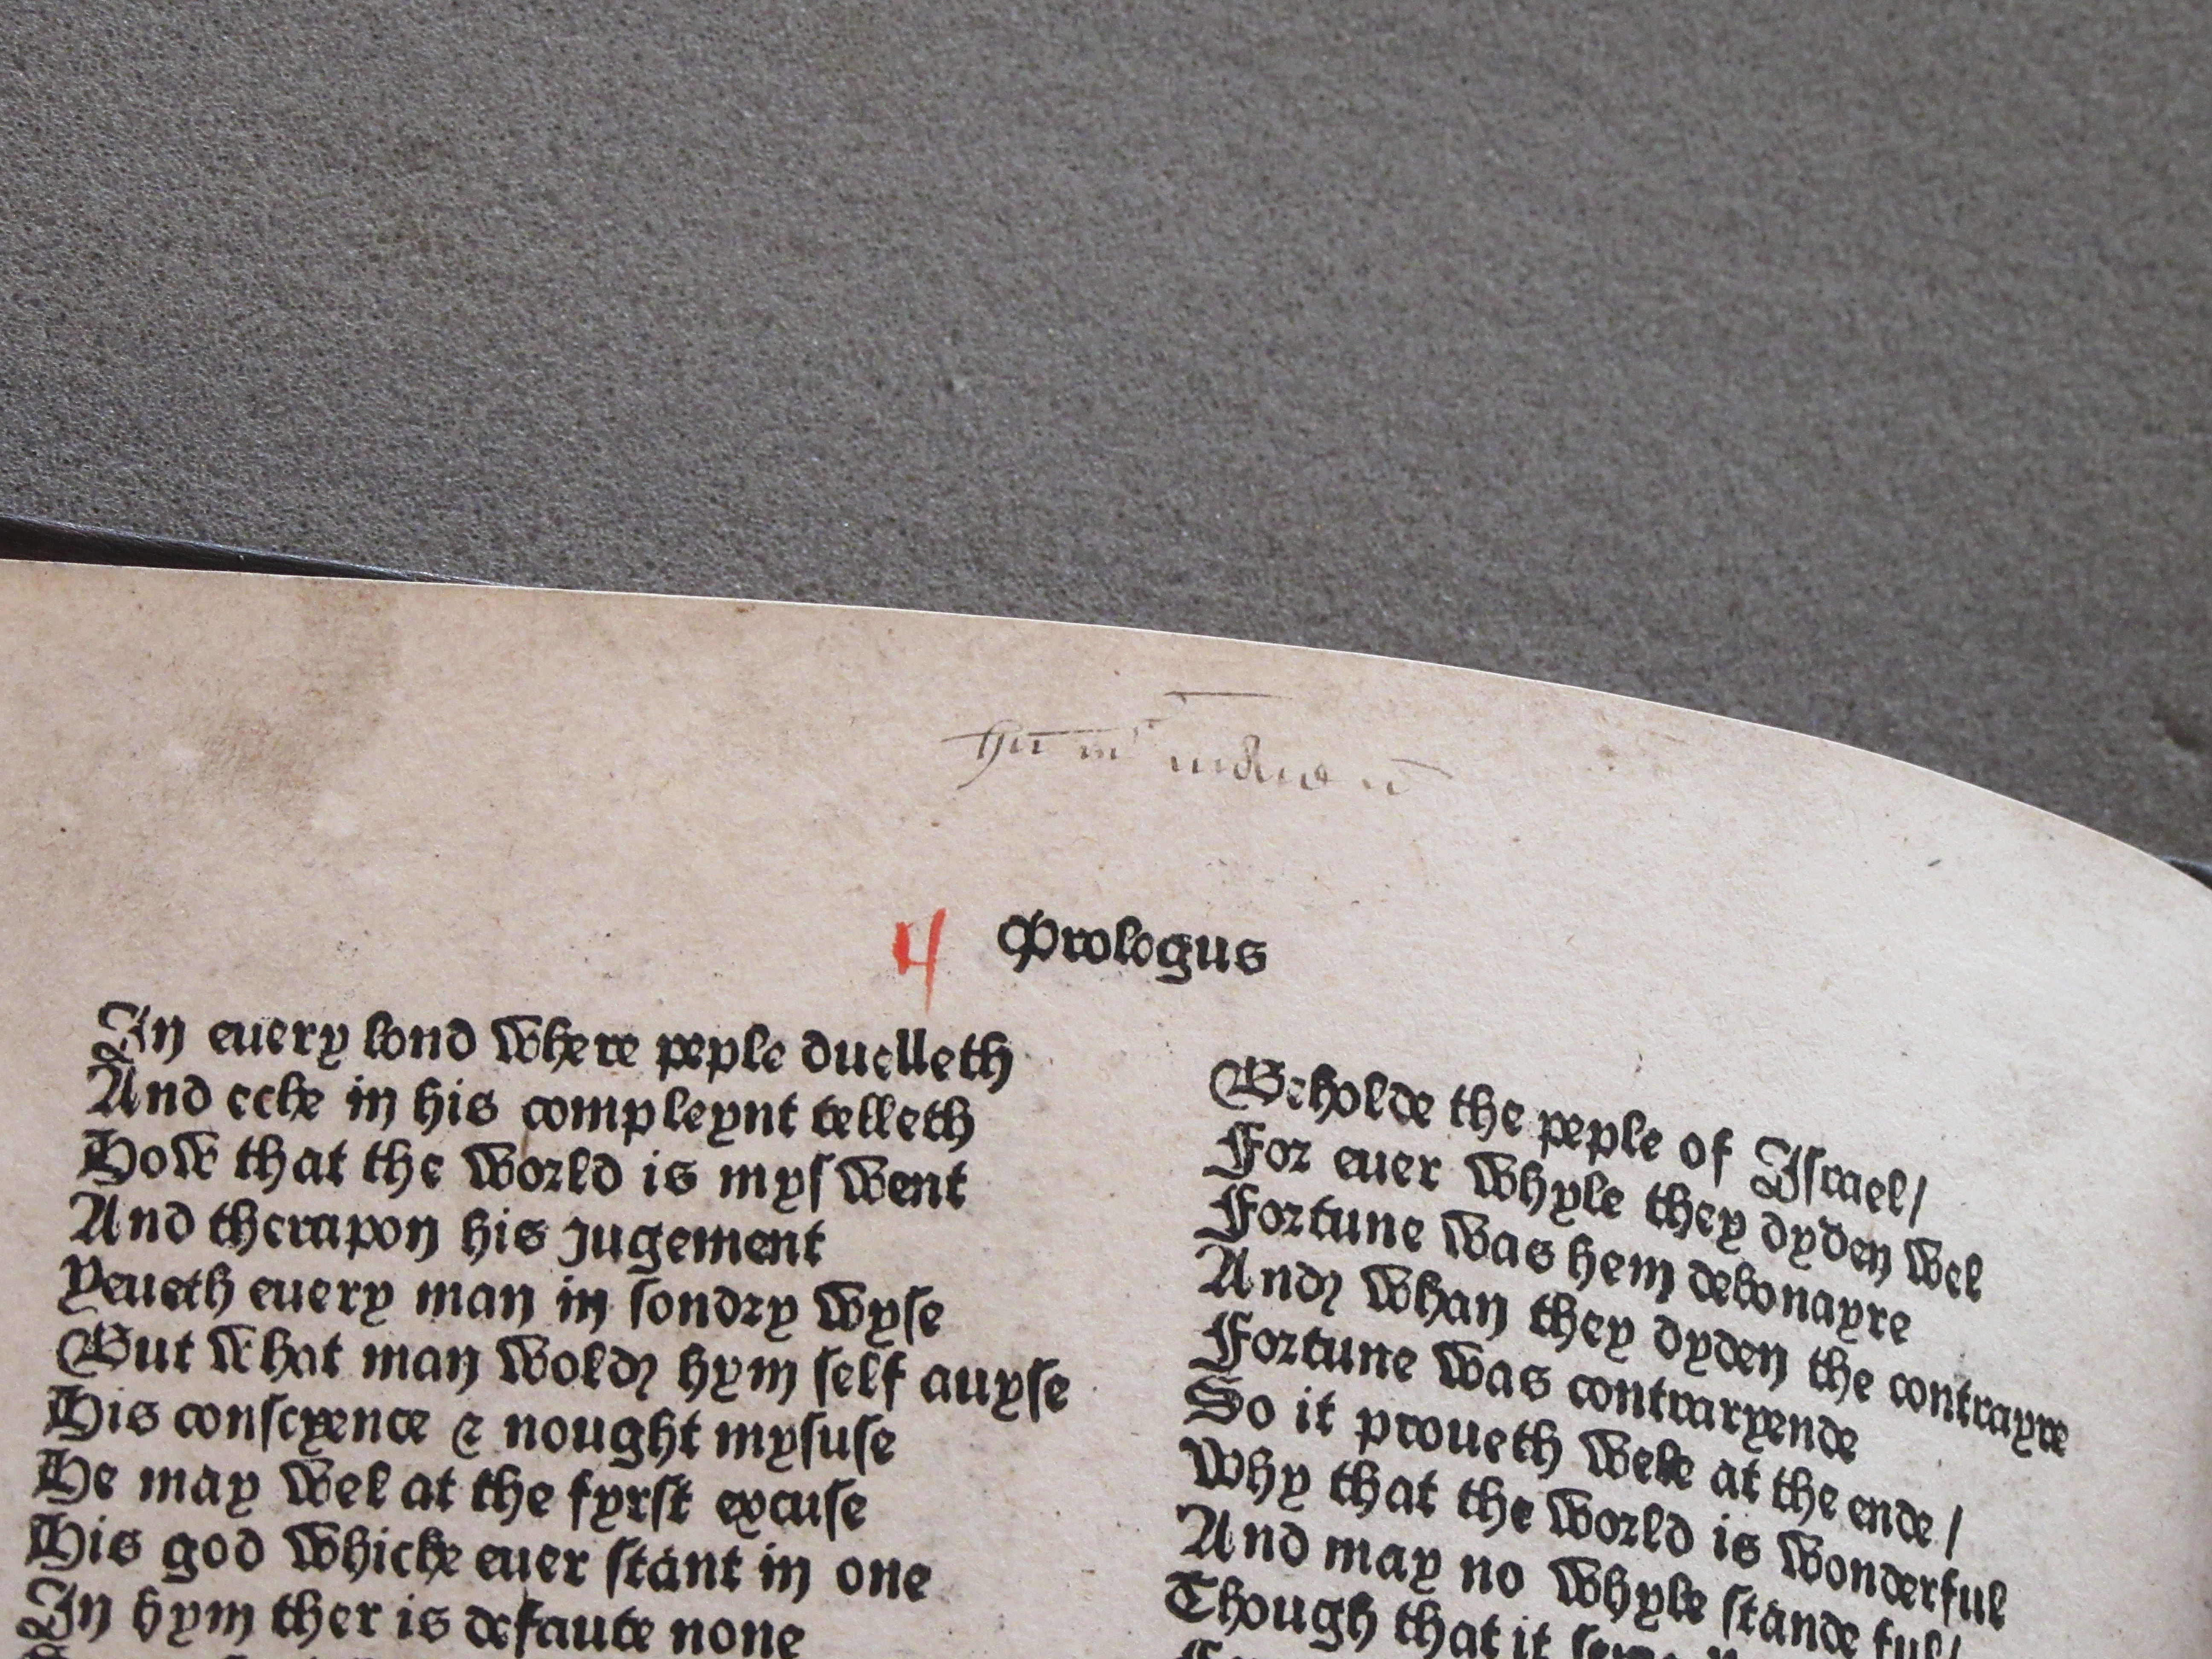 4 Prologus
In euery lond where peple duelleth
And eeke in his compleynt telleth
How that the world is mys went
And therapon his Jugement
Yeueth euery man in sondry wyse
But what man wold hym self auyse
His conscyence & nought mysuse
He may wel at the fyrst excuse
His god whiche euer stant in one
In hym ther is defaute none
Beholde the peple of Israel/
For euer whyle they dyden wel
Fortune was hem debonayre
And whan they dyden the contrayre
Fortune was contraryende
So it proueth wele at the ende/
Why that the world is wonderful
And may no whyle stande ful/
Though that it